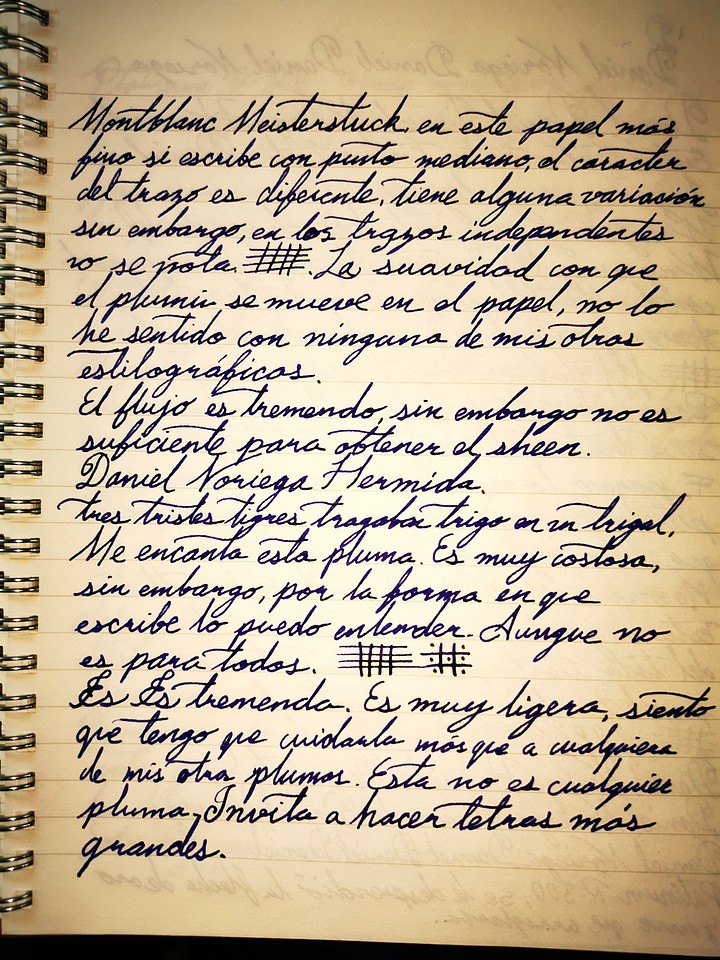 Montblanc Meisterstuck, en este papel más
fino si escribe con punto mediano, el carácter
del trazo es diferente, tiene alguna variación
sin embargo, en los trazos independientes
no se nota. La suavidad con que
el plumín se mueve en el papel, no lo
he sentido con ninguna de mis otras
estilográficas.
El flujo es tremendo, sin embargo no es
suficiente para obtener el sheen.
Daniel Noriega Hermida.
tres tristes tigres tragaban trigo en un trigal.
Me encanta esta pluma. Es muy costosa,
sin embargo, por la forma en que
escribe lo puedo entender. Aunque no
es para todos.
Es Es tremenda. Es muy ligera, siento
que tengo que cuidarla más que a cualquiera
de mis otra plumas. Esta no es cualquier
pluma, Invita a hacer letras más
grandes.